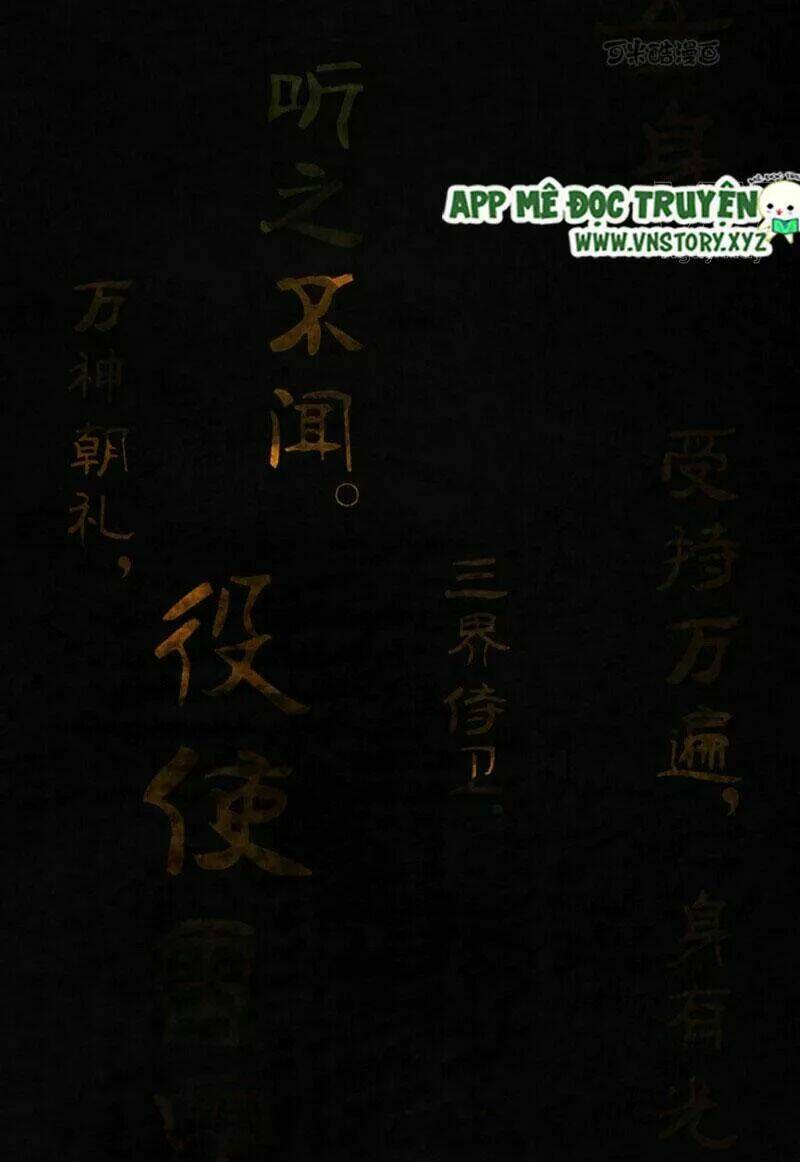 可米酷漫画
身
受持万遍，
身有光
三界侍卫，
听之不闻。
役使雷霆
万神朝礼，
APP MÊ ĐỌC TRUYỆN
WWW.VNSTORY.XYZ